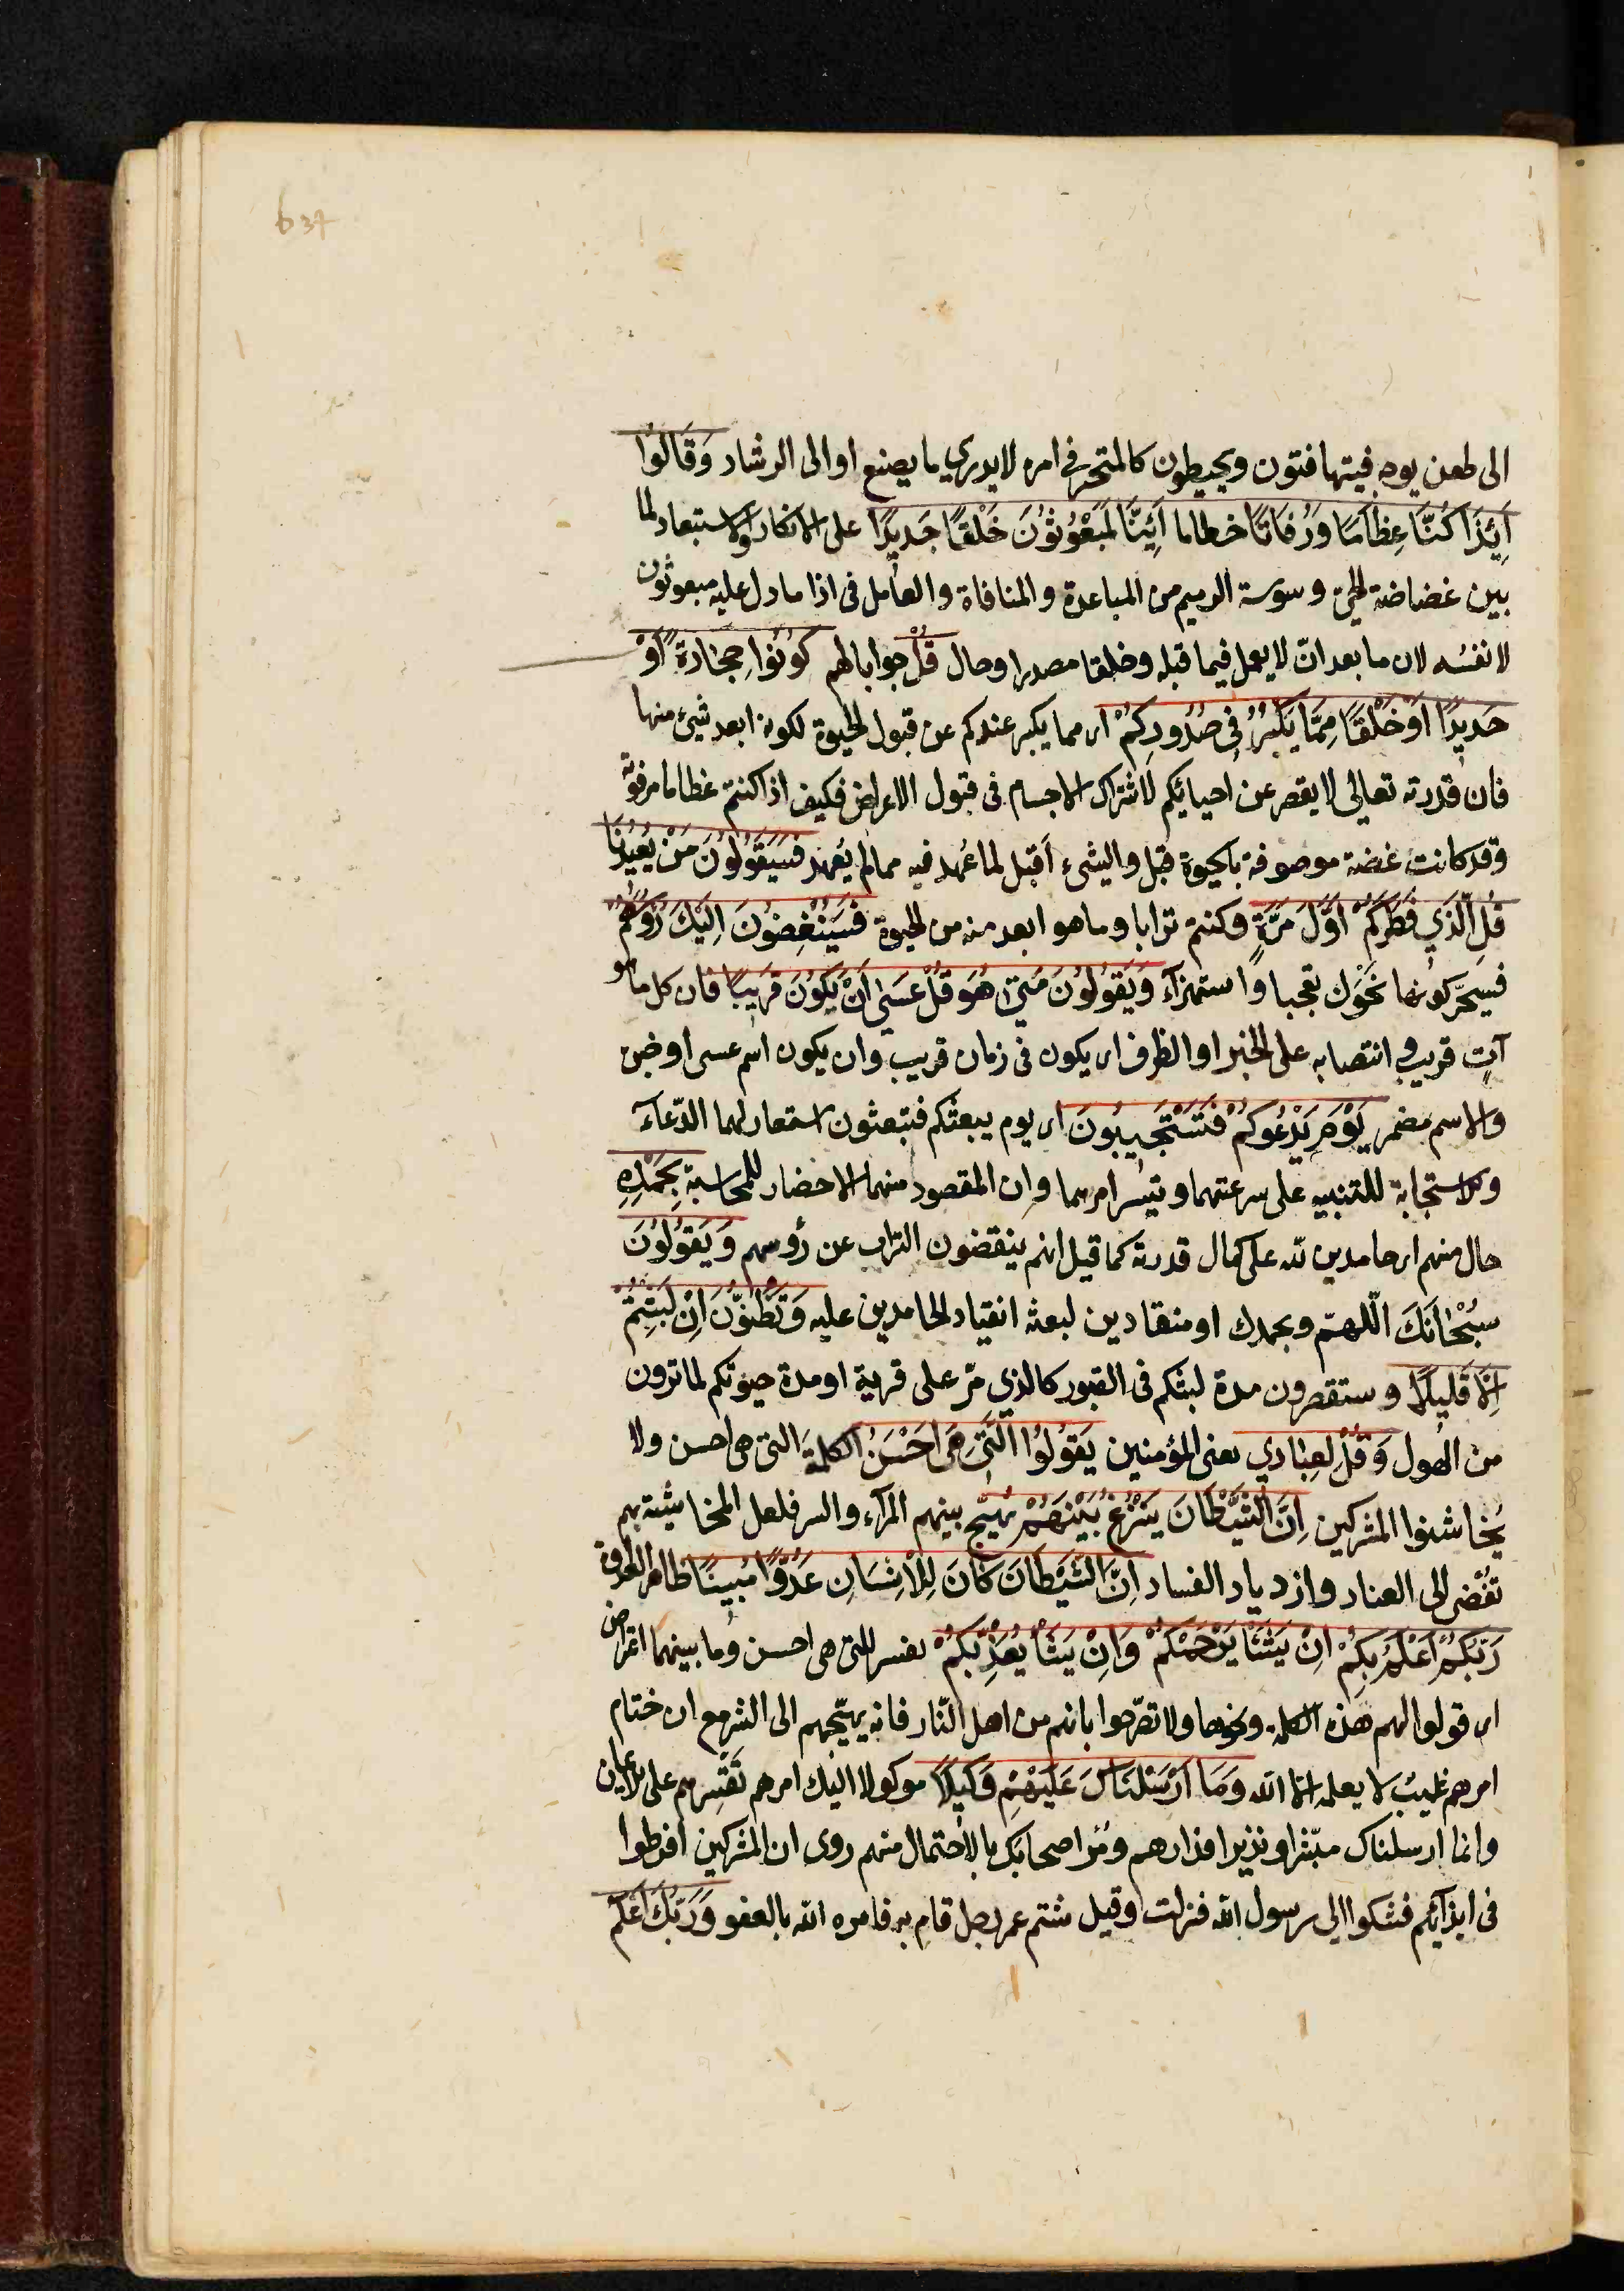 637
الى طعن يوجه فيتهافتون ويخبطون كالمتحير في امره لا يدري ما يصنع او الى الرشاد وَقَالُوا
أَئِذَا كُنَّا عِظَامًا وَرُفَاتًا حطاما أَئِنَّا لَمَبْعُوثُونَ خَلْقًا جَدِيدًا على الانكار والاستبعاد لما
بين غضاضة الحيّ ويبوسة الرميم من المباعدة والمنافاة والعامل فى اذا ما دل عليه مبعوثون
لا نفسُه لان ما بعد انّ لا يعمل فيما قبله وخلقا مصدر او حال قُلْ جوابا لهم كُونُوا حِجَارَةً أَوْ
حَدِيدًا اَوْ خَلْقًا مِمَّا يَكْبُرُ فِى صُدُورِكُمْ اى مما يكبر عندكم عن قبول الحيوة لكونه ابعد شيئ منها
فان قدرته تعالى لا يقصر عن احيائكم لاشتراك الاجسام فى قبول الاعراض فكيف اذا كنتم عظاما مرفوتة
وقد كانت غضة موصوفة بالحيوة قبل والشيء أقبل لما عُهد فيه مما لم يُعهد فَسَيَقُولُونَ مَنْ يُعِيدُنَا
قُلِ الَّذِي فَطَرَكُمْ اَوَّلَ مَرَّةٍ وكنتم ترابا وما هو ابعد منه من الحيوة فَسَيُنْغِضُونَ اِلَيْكَ رُؤُسَهُمْ
فسيحرّكونها نحوك تعجبا واستهزآء وَيَقُولُونَ مَتَى هُوَ قُلْ عَسَى اَنْ يَكُونَ قَرِيبًا فان كل ما هو
آتٍ قريب وانتصابه على الخبر او الظرف اى يكون فى زمان قريب وان يكون اسم عسى او خبره
والاسم مضمر يَوْمَ يَدْعُوكُمْ فَتَسْتَجِيبُونَ اى يوم يبعثكم فتبعثون استعار لهما الدّعآء
والاستجابة للتنبيه على سرعتهما وتيسر امرهما وان المقصود منهما الاحضار للمحاسبة بِحَمْدِهِ
حال منهم اى حامدين لله على كمال قدرته كما قيل انهم ينفضون التراب عن رؤسهم وَيَقُولُونَ
سُبْحَانَكَ اللّهمّ وبحمدك او منقادين لبعثه انقياد الحامدين عليه وَتَظُنُّونَ اِنْ لَبِثْتُمْ
اِلَّا قَلِيلًا وستقصرون مدة لبثكم فى القبور كالذي مرّ على قرية او مدة حيوتكم لما ترون
من الهول وَقُلْ لِعِبَادِي يعنى المؤمنين يَقُولُوا الَّتِى هِىَ اَحْسَنُ الكلمة التى هى احسن ولا
يُخاشنوا المشركين اِنَّ الشَّيْطَانَ يَنْزَغُ بَيْنَهُمْ يُهيّج بينهم المرآء والشر فلعل المخاشنة بهم
تفضى الى العناد وازدياد الفساد اِنَّ الشَّيْطَانَ كَانَ لِلْاِنْسَانِ عَدُوًّا مُبِينًا ظاهر العداوة
رَبُّكُمْ اَعْلَمُ بِكُمْ اِنْ يَشَأْ يَرْحَمْكُمْ وَاِنْ يَشَأْ يُعَذِّبْكُمْ تفسير للتى هى احسن وما بينهما اعتراض
اى قولوا لهم هذه الكلمة ونحوها ولا تصرّحوا بانهم من اهل النّار فانه يهيّجهم الى الشر مع ان ختام
امرهم غيب لا يعلمه الا الله وَمَا اَرْسَلْنَاكَ عَلَيْهِمْ وَكِيلًا موكولا اليك امرهم تقسرهم على الايمان
وانما ارسلناك مبشرا ونذيرا فدارهم ومُر اصحابك بالاحتمال منهم روى ان المشركين افرطوا
فى ايذآئهم فشكوا الى رسول الله فنزلت وقيل شتم عمر رجل فهم به فامره الله بالعفو وَرَبُّكَ اَعْلَمُ